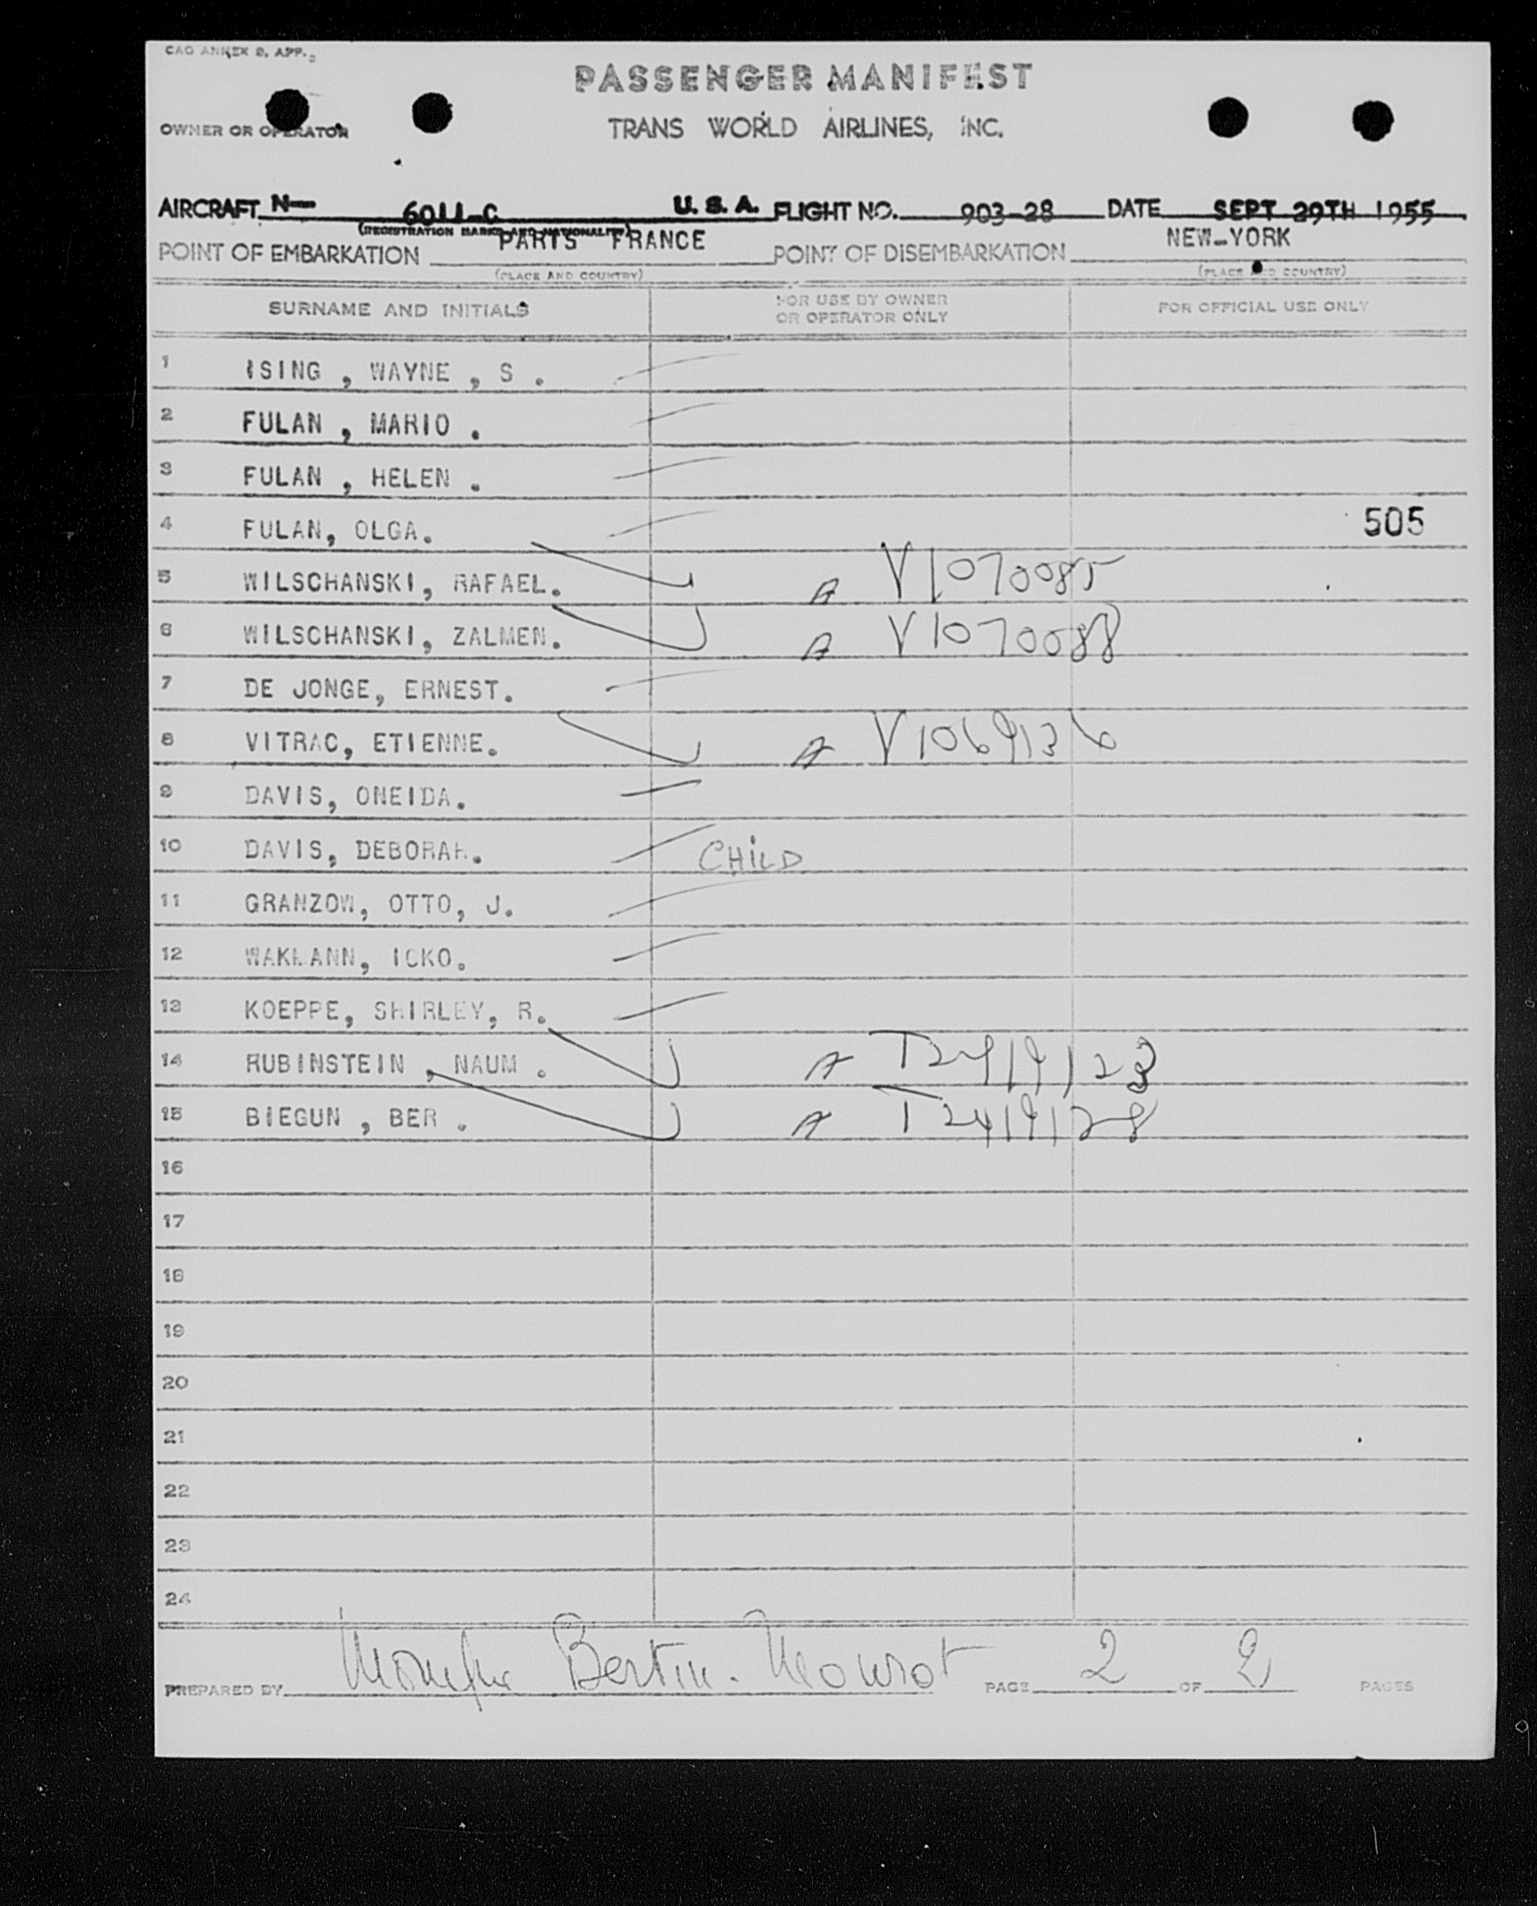 CAO ANNEX 9, APP.
PASSENGER MANIFEST
OWNER OR OPERATOR
TRANS WORLD AIRLINES, INC.
AIRCRAFT N— 6011-C U. S. A. FLIGHT NO. 903-28 DATE SEPT 29TH 1955
(REGISTRATION MARKS AND NATIONALITY)
POINT OF EMBARKATION PARIS FRANCE POINT OF DISEMBARKATION NEW-YORK
(PLACE AND COUNTRY) (PLACE AND COUNTRY)
SURNAME AND INITIALS FOR USE BY OWNER OR OPERATOR ONLY FOR OFFICIAL USE ONLY
1 ISING , WAYNE , S .
2 FULAN , MARIO .
3 FULAN , HELEN .
4 FULAN, OLGA. 505
5 WILSCHANSKI, RAFAEL. A V1070085
6 WILSCHANSKI, ZALMEN. A V1070088
7 DE JONGE, ERNEST.
8 VITRAC, ETIENNE. A V1069136
9 DAVIS, ONEIDA.
10 DAVIS, DEBORAH. CHILD
11 GRANZOW, OTTO, J.
12 WAKMANN, ICKO.
13 KOEPPE, SHIRLEY, R.
14 RUBINSTEIN , NAUM . A T2419123
15 BIEGUN , BER . A T2419128
16
17
18
19
20
21
22
23
24
PREPARED BY Monique Bertin-Mourot PAGE 2 OF 2 PAGES